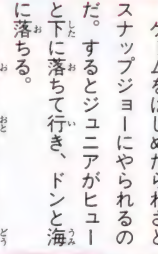 ゲームをはじめたらわざと
スナップジョーにやられるの
だ。するとジュニアがヒュー
と下に落ちて行き、ドンと海
に落ちる。